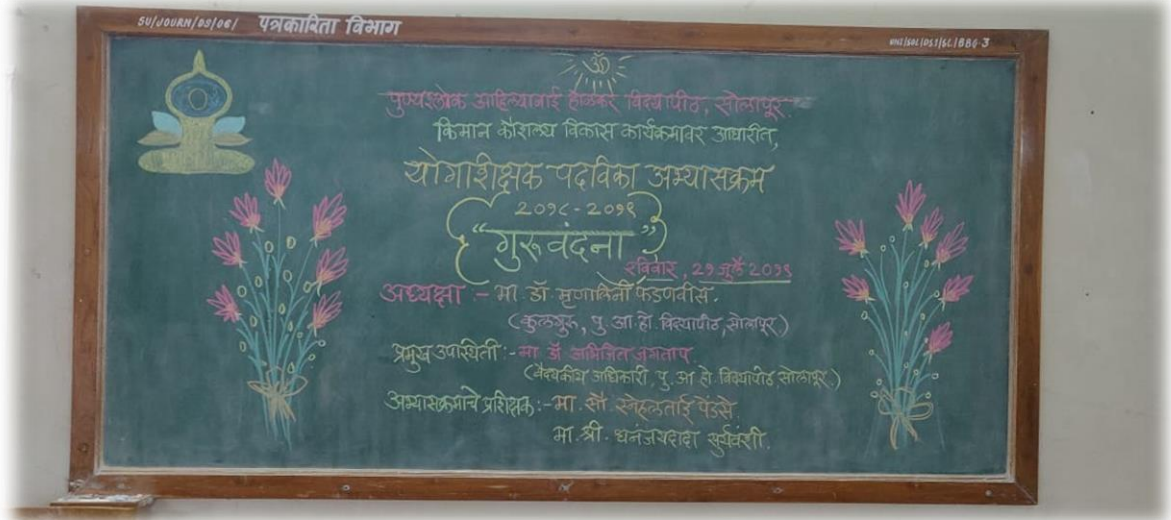 SU/JOURN/DS/06/ पत्रकारिता विभाग
ॐ
पुण्यश्लोक अहिल्याबाई होळकर विद्यापीठ, सोलापूर.
किमान कौशल्य विकास कार्यक्रमावर आधारीत,
योगाशीक्षक पदविका अभ्यासक्रम
२०१८-२०१९
"गुरूवंदना"
रविवार, २१ जुलै २०१९
अध्यक्षा :- मा. डॉ. मृणालिनी फडणवीस.
(कुलगुरू, पु. आ. हो. विद्यापीठ, सोलापूर)
प्रमुख उपस्थिती :- मा डॉ अभिजित जगताप.
(वैद्यकीय अधिकारी, पु. आ हो. विद्यापीठ, सोलापूर.)
अभ्यासक्रमाचे प्रशिक्षक :- मा. सौ. स्नेहलताई पेंडसे.
मा. श्री. धनंजयदादा सुर्यवंशी.